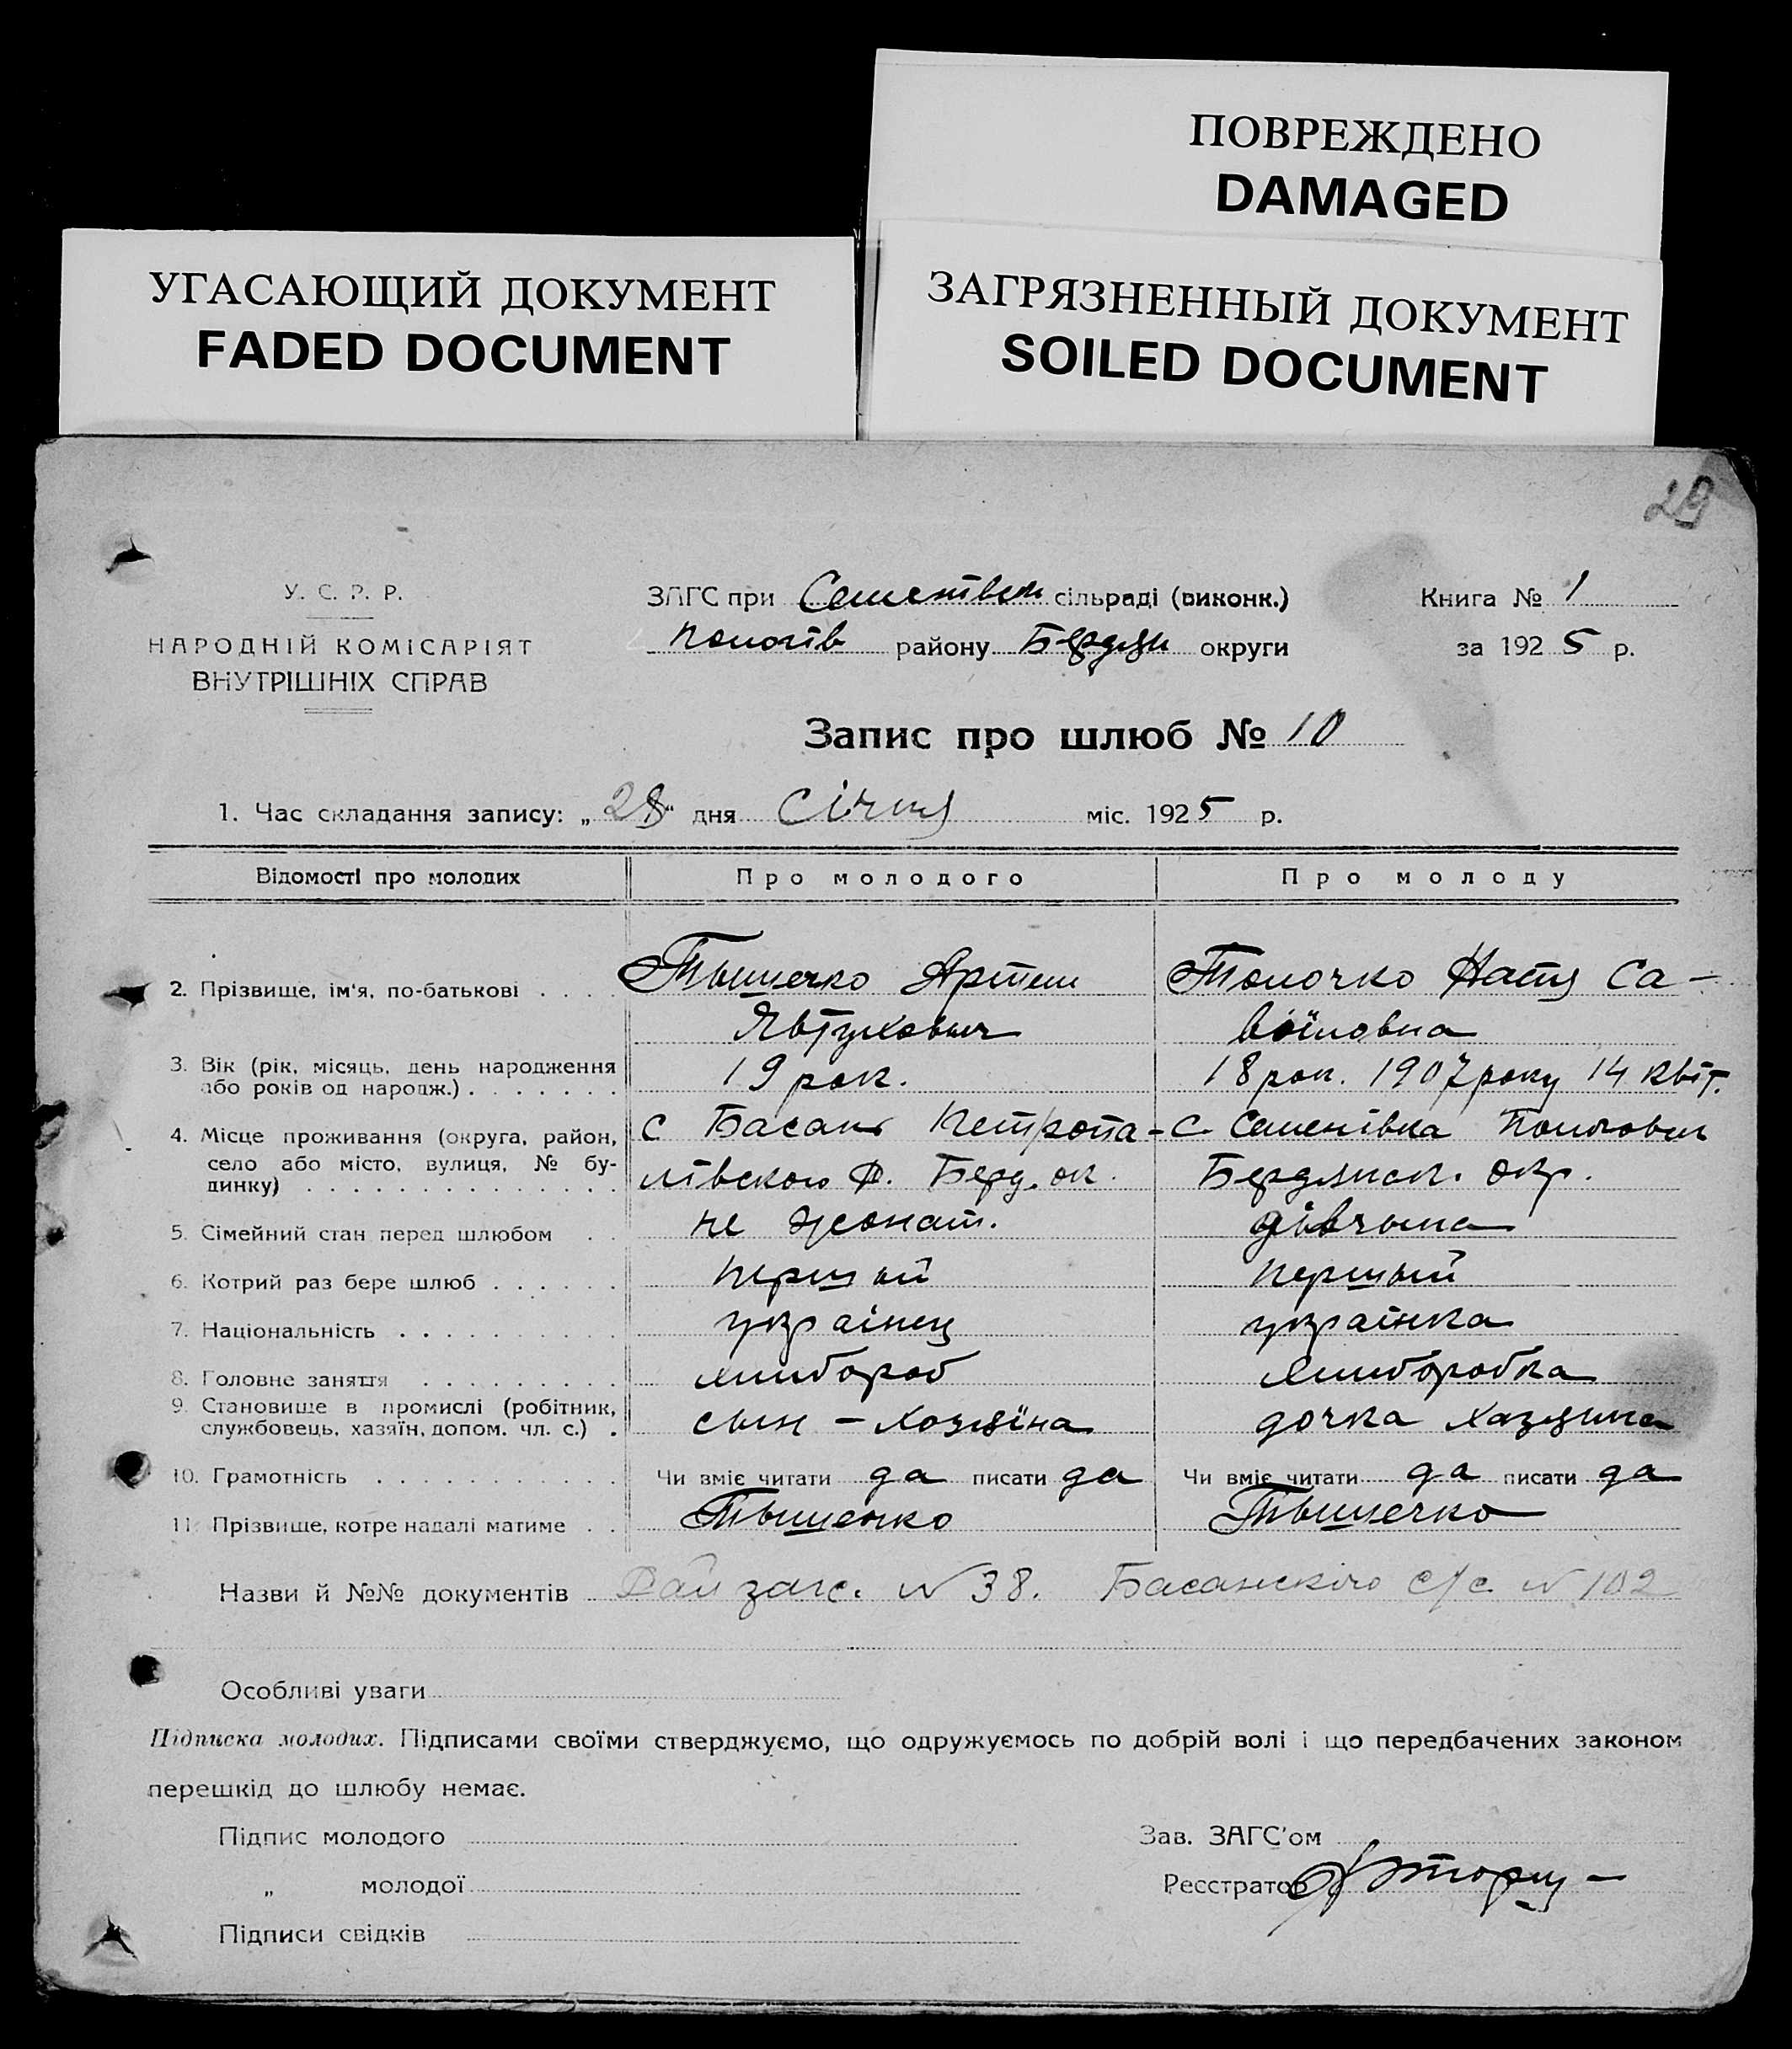 ПОВРЕЖДЕНО
DAMAGED
УГАСАЮЩИЙ ДОКУМЕНТ
FADED DOCUMENT
ЗАГРЯЗНЕННЫЙ ДОКУМЕНТ
SOILED DOCUMENT
29
У. С. Р. Р.
НАРОДНІЙ КОМІСАРІЯТ
ВНУТРІШНІХ СПРАВ
ЗАГС при сільраді (виконк.)
Пологів району Бердян округи
Книга № 1
за 1925 р.
Запис про шлюб № 10
1. Час складання запису: „28“ дня Січня міс. 1925 р.
Відомості про молодих Про молодого Про молоду
2. Прізвище, ім'я, по-батькові . . . . Тышечко Артем Толочко Настя Са-
Явтухович воїловна
3. Вік (рік, місяць, день народження 19 рок. 18 рок. 1907 року 14 квіт.
або років од народж.) . . . . . . .
4. Місце проживання (округа, район, с Басань Петропа- с. Семенівка Пологовск
село або місто, вулиця, № бу- лівского Р. Берд. ок. Бердянск. окр.
динку) . . . . . . . . . . . . . .
5. Сімейний стан перед шлюбом . . не жонат. дівчына
6. Котрий раз бере шлюб . . . . . . першый першый
7. Національність . . . . . . . . . . українец українка
8. Головне заняття . . . . . . . . . хлибороб хлиборобка
9. Становище в промислі (робітник, сын - хозяїна дочка хазяина
службовець, хазяїн, допом. чл. с.) .
10. Грамотність . . . . . . . . . . . Чи вміє читати да писати да Чи вміє читати да писати да
11. Прізвище, котре надалі матиме . . Тышечко Тышечко
Назви й №№ документів Рай загс. № 38. Басанского с/с. № 102
Особливі уваги
Підписка молодих. Підписами своїми стверджуємо, що одружуємось по добрій волі і що передбачених законом
перешкід до шлюбу немає.
Підпис молодого
„ молодої
Підписи свідків
Зав. ЗАГС'ом
Реєстратор